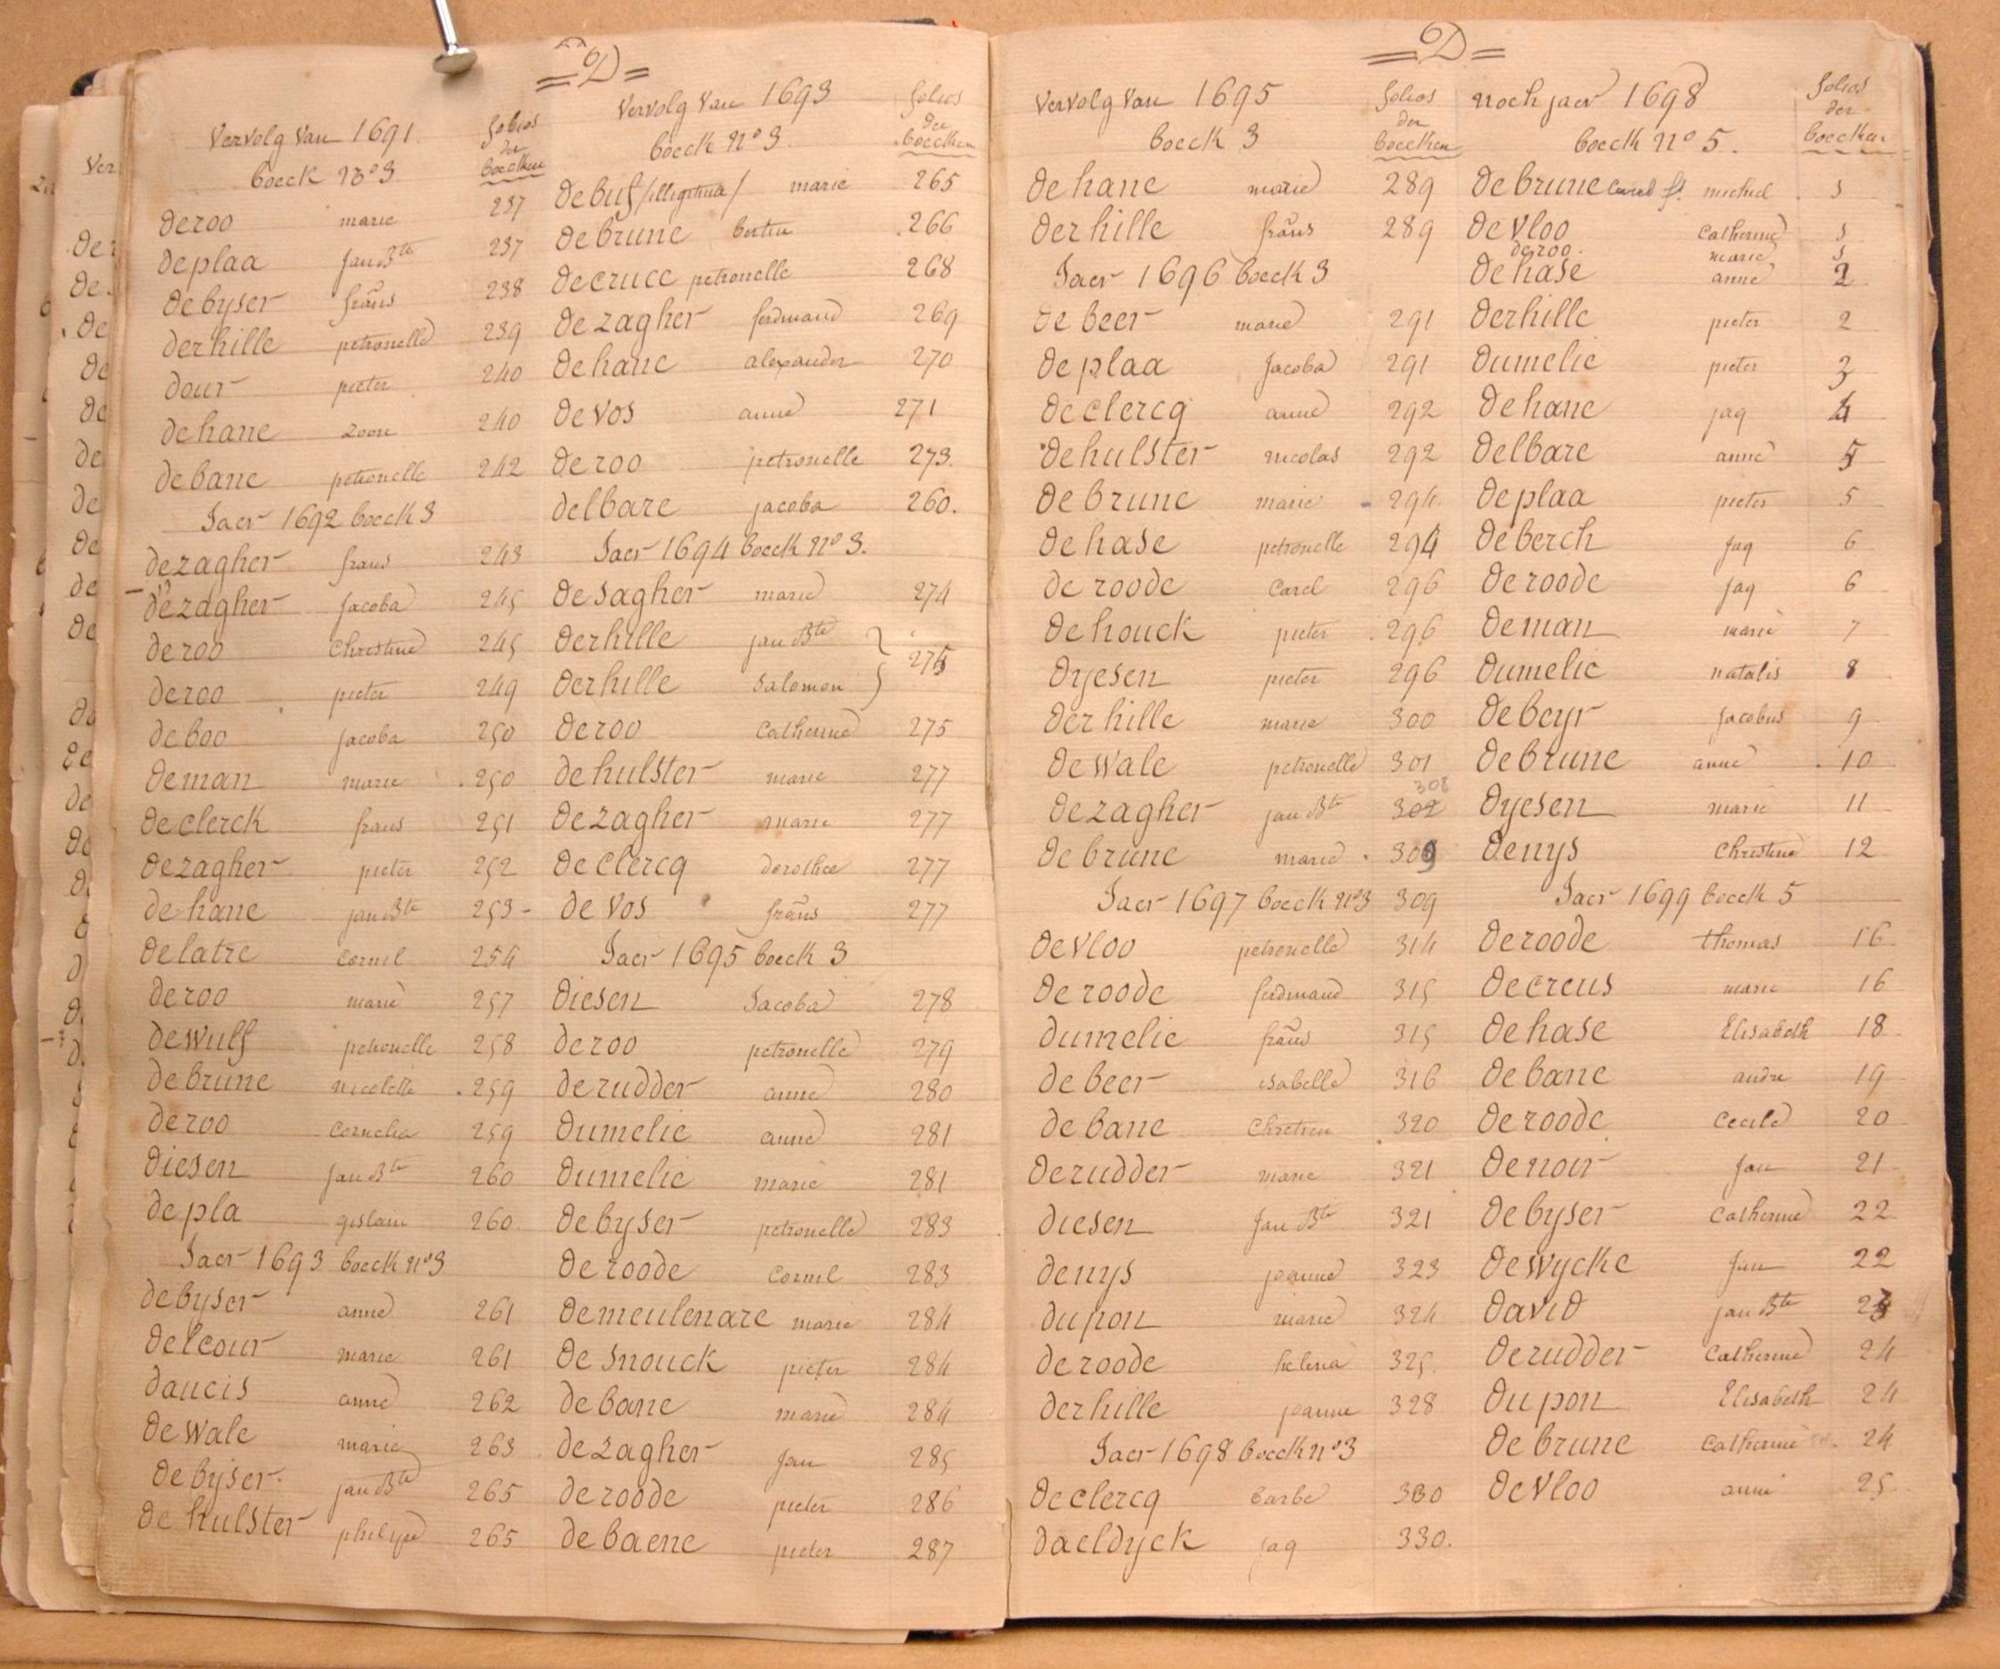 = D =
Vervolg van 1691
boeck No 3
folios
der
boecken
deroo marie 237
deplaa Jan Bte 237
debyser frans 238
derhille petronelle 239
dour pieter 240
dehane zoon 240
debane petronelle 242
Jaer 1692 boeck 3
dezagher frans 243
dezagher Jacoba 245
deroo Christine 245
deroo pieter 249
deboo jacoba 250
deman marie 250
declerck frans 251
dezagher pieter 252
dehane jan Bte 253
delatre cornil 254
deroo marie 257
dewulf petronelle 258
debrune nicolette 259
deroo cornelia 259
diesen Jan Bte 260
depla gislain 260
Jaer 1693 boeck no 3
debyser anne 261
delcour marie 261
daucis anne 262
dewale marie 263
debyser jan Bte 265
de hulster philipe 265
Vervolg van 1693
boeck No 3
folios
der
boecken
debuf /illigitima/ marie 265
debrune bertin 266
decruce petronelle 268
dezagher ferdinand 269
dehane alexander 270
devos anne 271
deroo petronelle 273
delbare jacoba 260.
Jaer 1694 boeck No 3.
desagher marie 274
derhille jan Bte } 275
derhille salomon }
deroo catherine 275
dehulster marie 277
dezagher marie 277
declercq dorothee 277
de vos frans 277
Jaer 1695 boeck 3
diesen Jacoba 278
deroo petronelle 279
derudder anne 280
dumelie anne 281
dumelie marie 281
debyser petronelle 283
deroode cornil 283
demeulenare marie 284
desnouck pieter 284
debane marie 284
dezagher Jan 285
deroode pieter 286
debaene pieter 287
= D =
Vervolg van 1695
boeck 3
folios
der
boecken
dehane marie 289
derhille frans 289
Jaer 1696 boeck 3
de beer marie 291
deplaa Jacoba 291
declercq anne 292
dehulster nicolas 292
debrune marie 294
dehase petronelle 294
de roode carel 296
dehouck pieter 296
dyesen pieter 296
derhille marie 300
dewale petronelle 301
308
dezagher jan Bte 302
debrune marie 309
Jaer 1697 boeck no 3 309
devloo petronelle 314
deroode ferdinand 315
dumelie frans 315
debeer isabelle 316
debane Chretien 320
derudder marie 321
diesen Jan Bte 321
denys joanne 323
dupon marie 324
deroode helena 325
derhille joanne 328
Jaer 1698 boeck no 3
declercq barbe 330
daeldyck jaq 330.
noch jaer 1698
boeck No 5.
folios
der
boecken
debrune carel f. michiel 1
devloo catherine 1
deroo marie 1
dehase anne 2
derhille pieter 2
dumelie pieter 3
dehane jaq 4
delbare anne 5
deplaa pieter 5
deberch Jaq 6
deroode Jaq 6
deman marie 7
dumelie natalis 8
debeyr Jacobus 9
debrune anne 10
dyesen marie 11
denys Christine 12
Jaer 1699 boeck 5
deroode thomas 16
decreus marie 16
dehase Elisabeth 18
debane andre 19
deroode Cecile 20
denoir Jan 21
debyser Catherine 22
dewycke Jan 22
david jan Bte 23
derudder Catherine 24
dupon Elisabeth 24
debrune Catherine 24
devloo anne 25